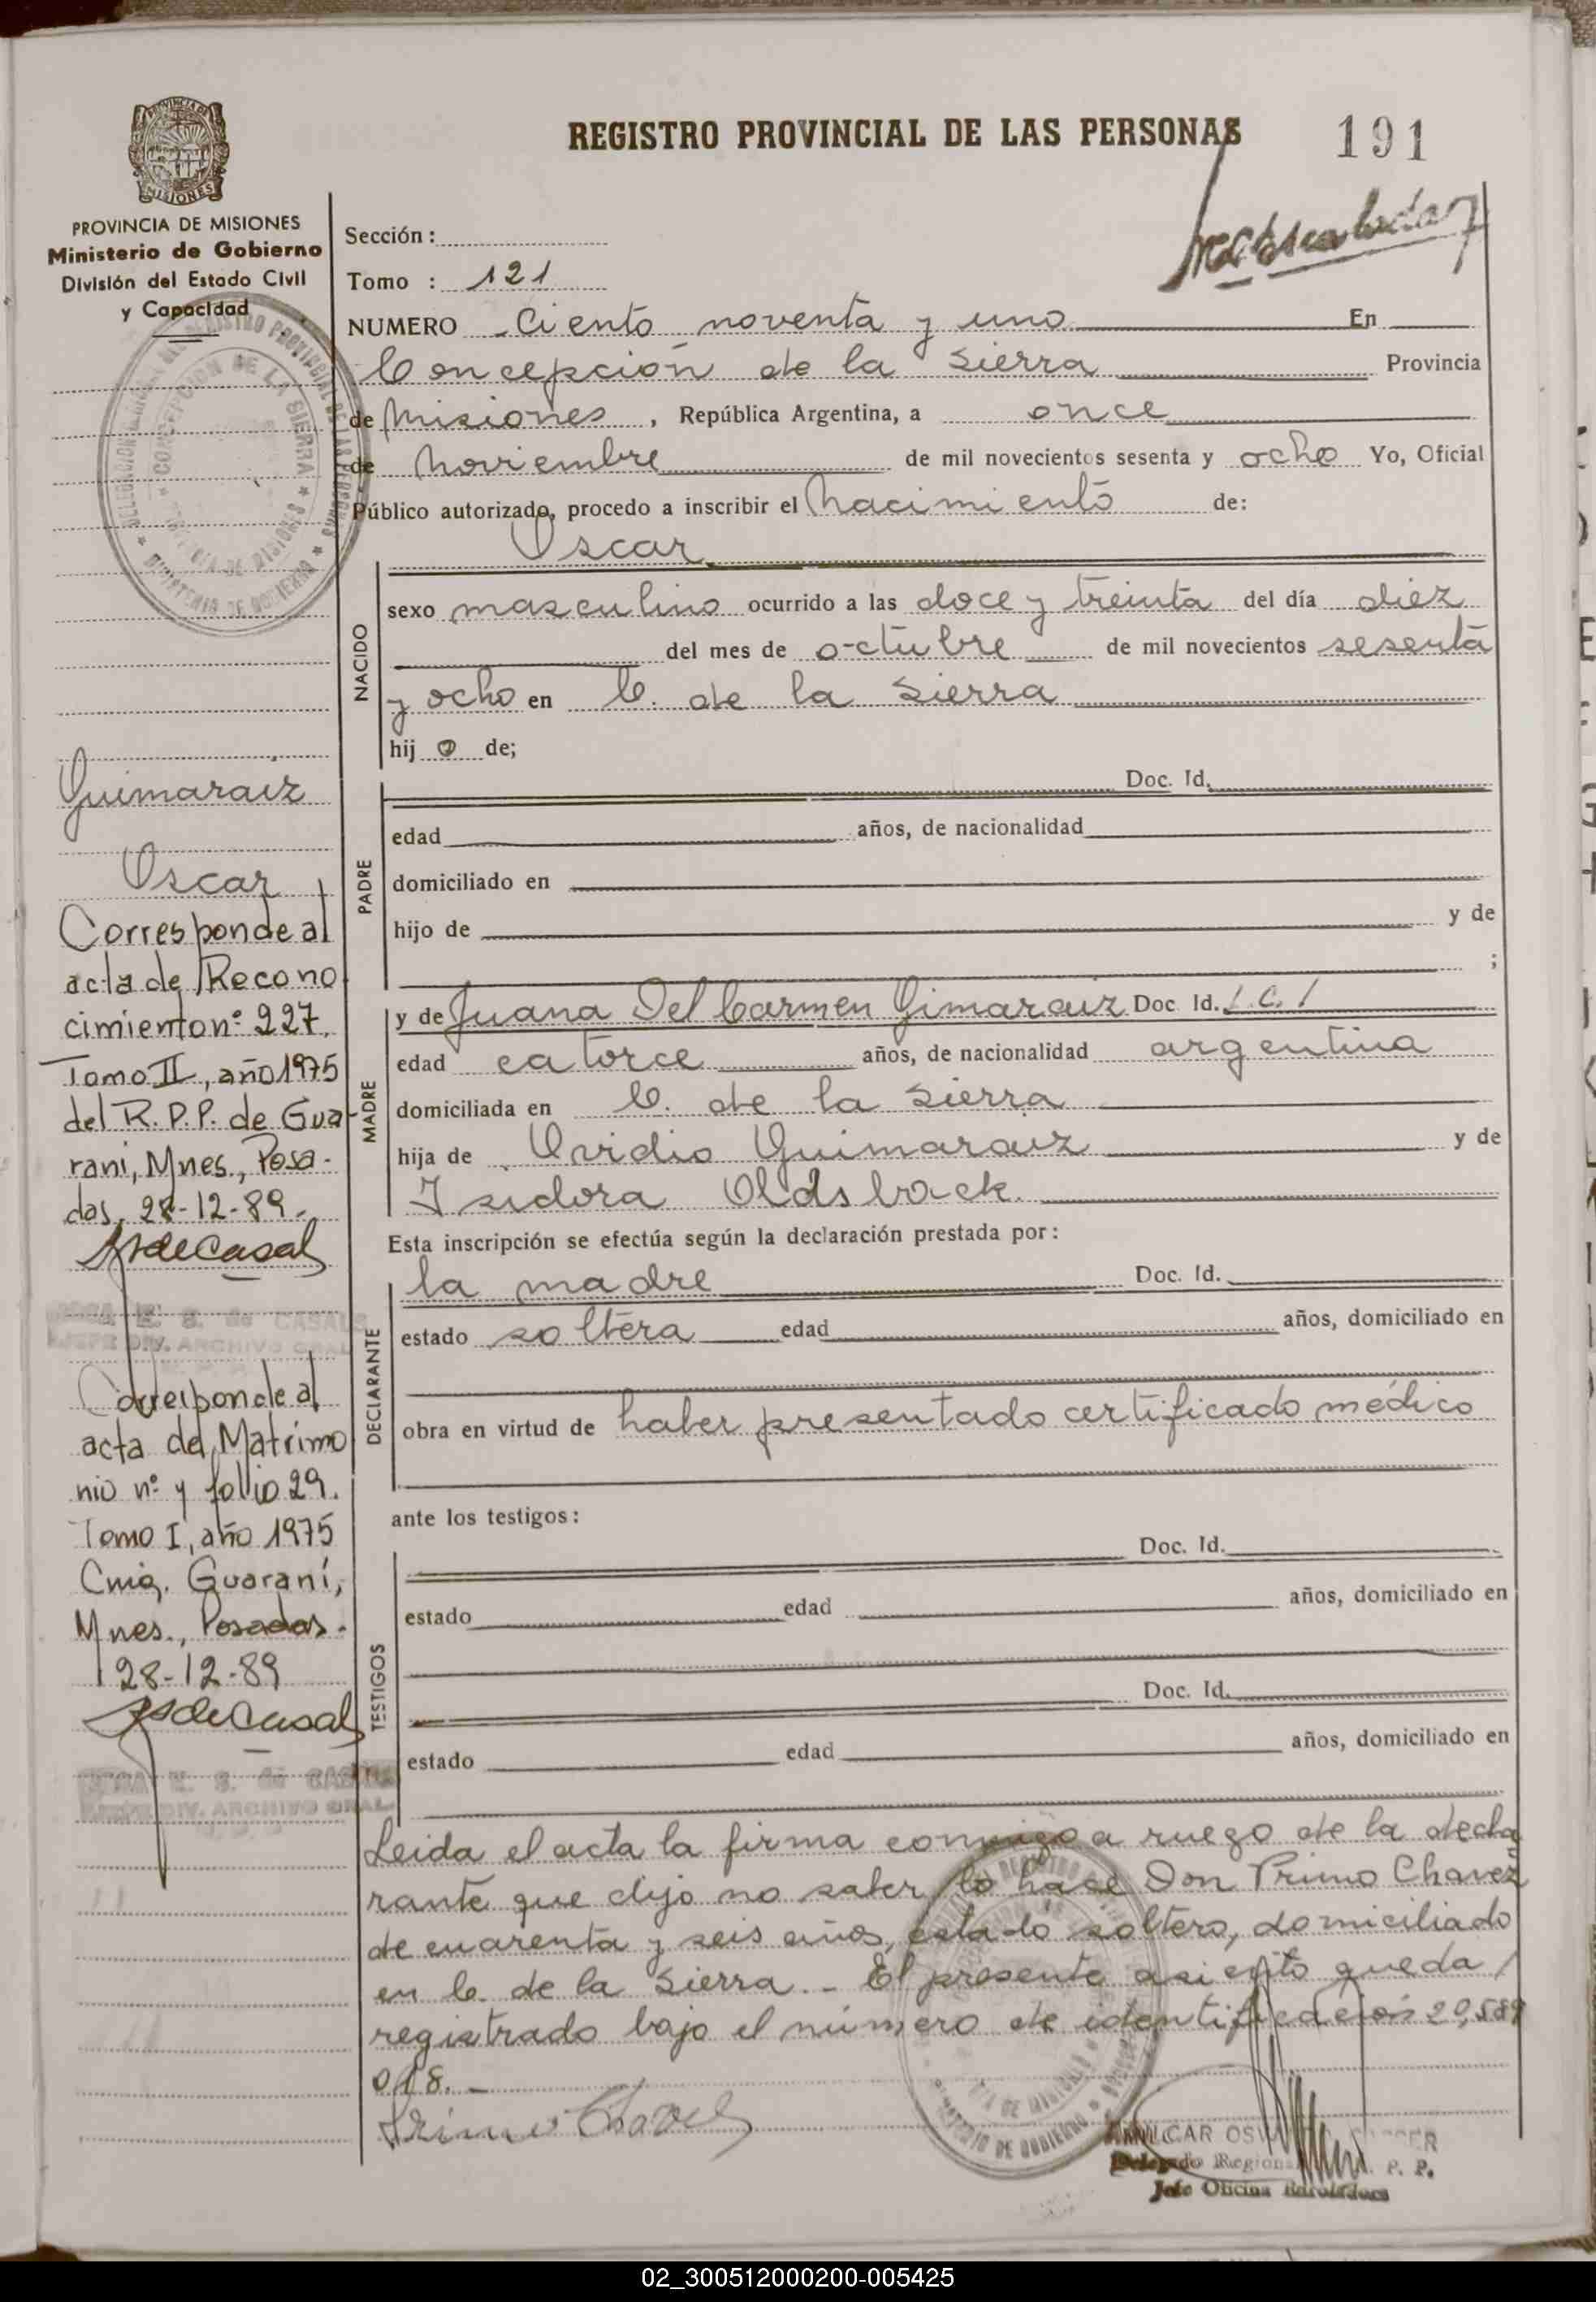 REGISTRO PROVINCIAL DE LAS PERSONAS
191
PROVINCIA DE MISIONES
Ministerio de Gobierno
División del Estado Civil
y Capacidad
Sección:
Tomo : 121
NUMERO Ciento noventa y uno En
Concepción de la Sierra Provincia
de Misiones, República Argentina, a once
de Noviembre de mil novecientos sesenta y ocho Yo, Oficial
Público autorizado, procedo a inscribir el Nacimiento de:
Oscar
NACIDO
sexo masculino ocurrido a las doce y treinta del día diez
del mes de octubre de mil novecientos sesenta
y ocho en C. de la Sierra
hijo de;
Guimaraiz
Oscar
Corresponde al
acta de Recono
cimiento nº 227.
Tomo II, año 1975
del R.P.P. de Gua
rani, Mnes., Posa-
das, 28-12-89.
PADRE
Doc. Id.
edad años, de nacionalidad
domiciliado en
hijo de y de
;
MADRE
y de Juana Del Carmen Gimaraiz Doc. Id.
edad catorce años, de nacionalidad argentina
domiciliada en C. de la Sierra
hija de Ovidio Guimaraiz y de
Isidora Oldsback.
Esta inscripción se efectúa según la declaración prestada por:
DECLARANTE
la madre Doc. Id.
estado soltera edad años, domiciliado en
obra en virtud de haber presentado certificado médico
de CASALS
DIV. ARCHIVO GRAL.
Corresponde al
acta de Matrimo
nio nº y follio 29.
Tomo I, año 1975
Guaraní,
Mnes., Posadas.
28-12-89
DIV. ARCHIVO GRAL.
ante los testigos:
TESTIGOS
Doc. Id.
estado edad años, domiciliado en
Doc. Id.
estado edad años, domiciliado en
Leida el acta la firma conmigo a ruego de la decla
rante que dijo no saber lo hace Don Primo Chavez
de cuarenta y seis años, estado soltero, domiciliado
en C. de la Sierra.- El presente asiento queda
registrado bajo el número de identificación 20,589
018.-
Primo Chavez
Delegado Regional R. P. P.
Jefe Oficina
02_300512000200-005425